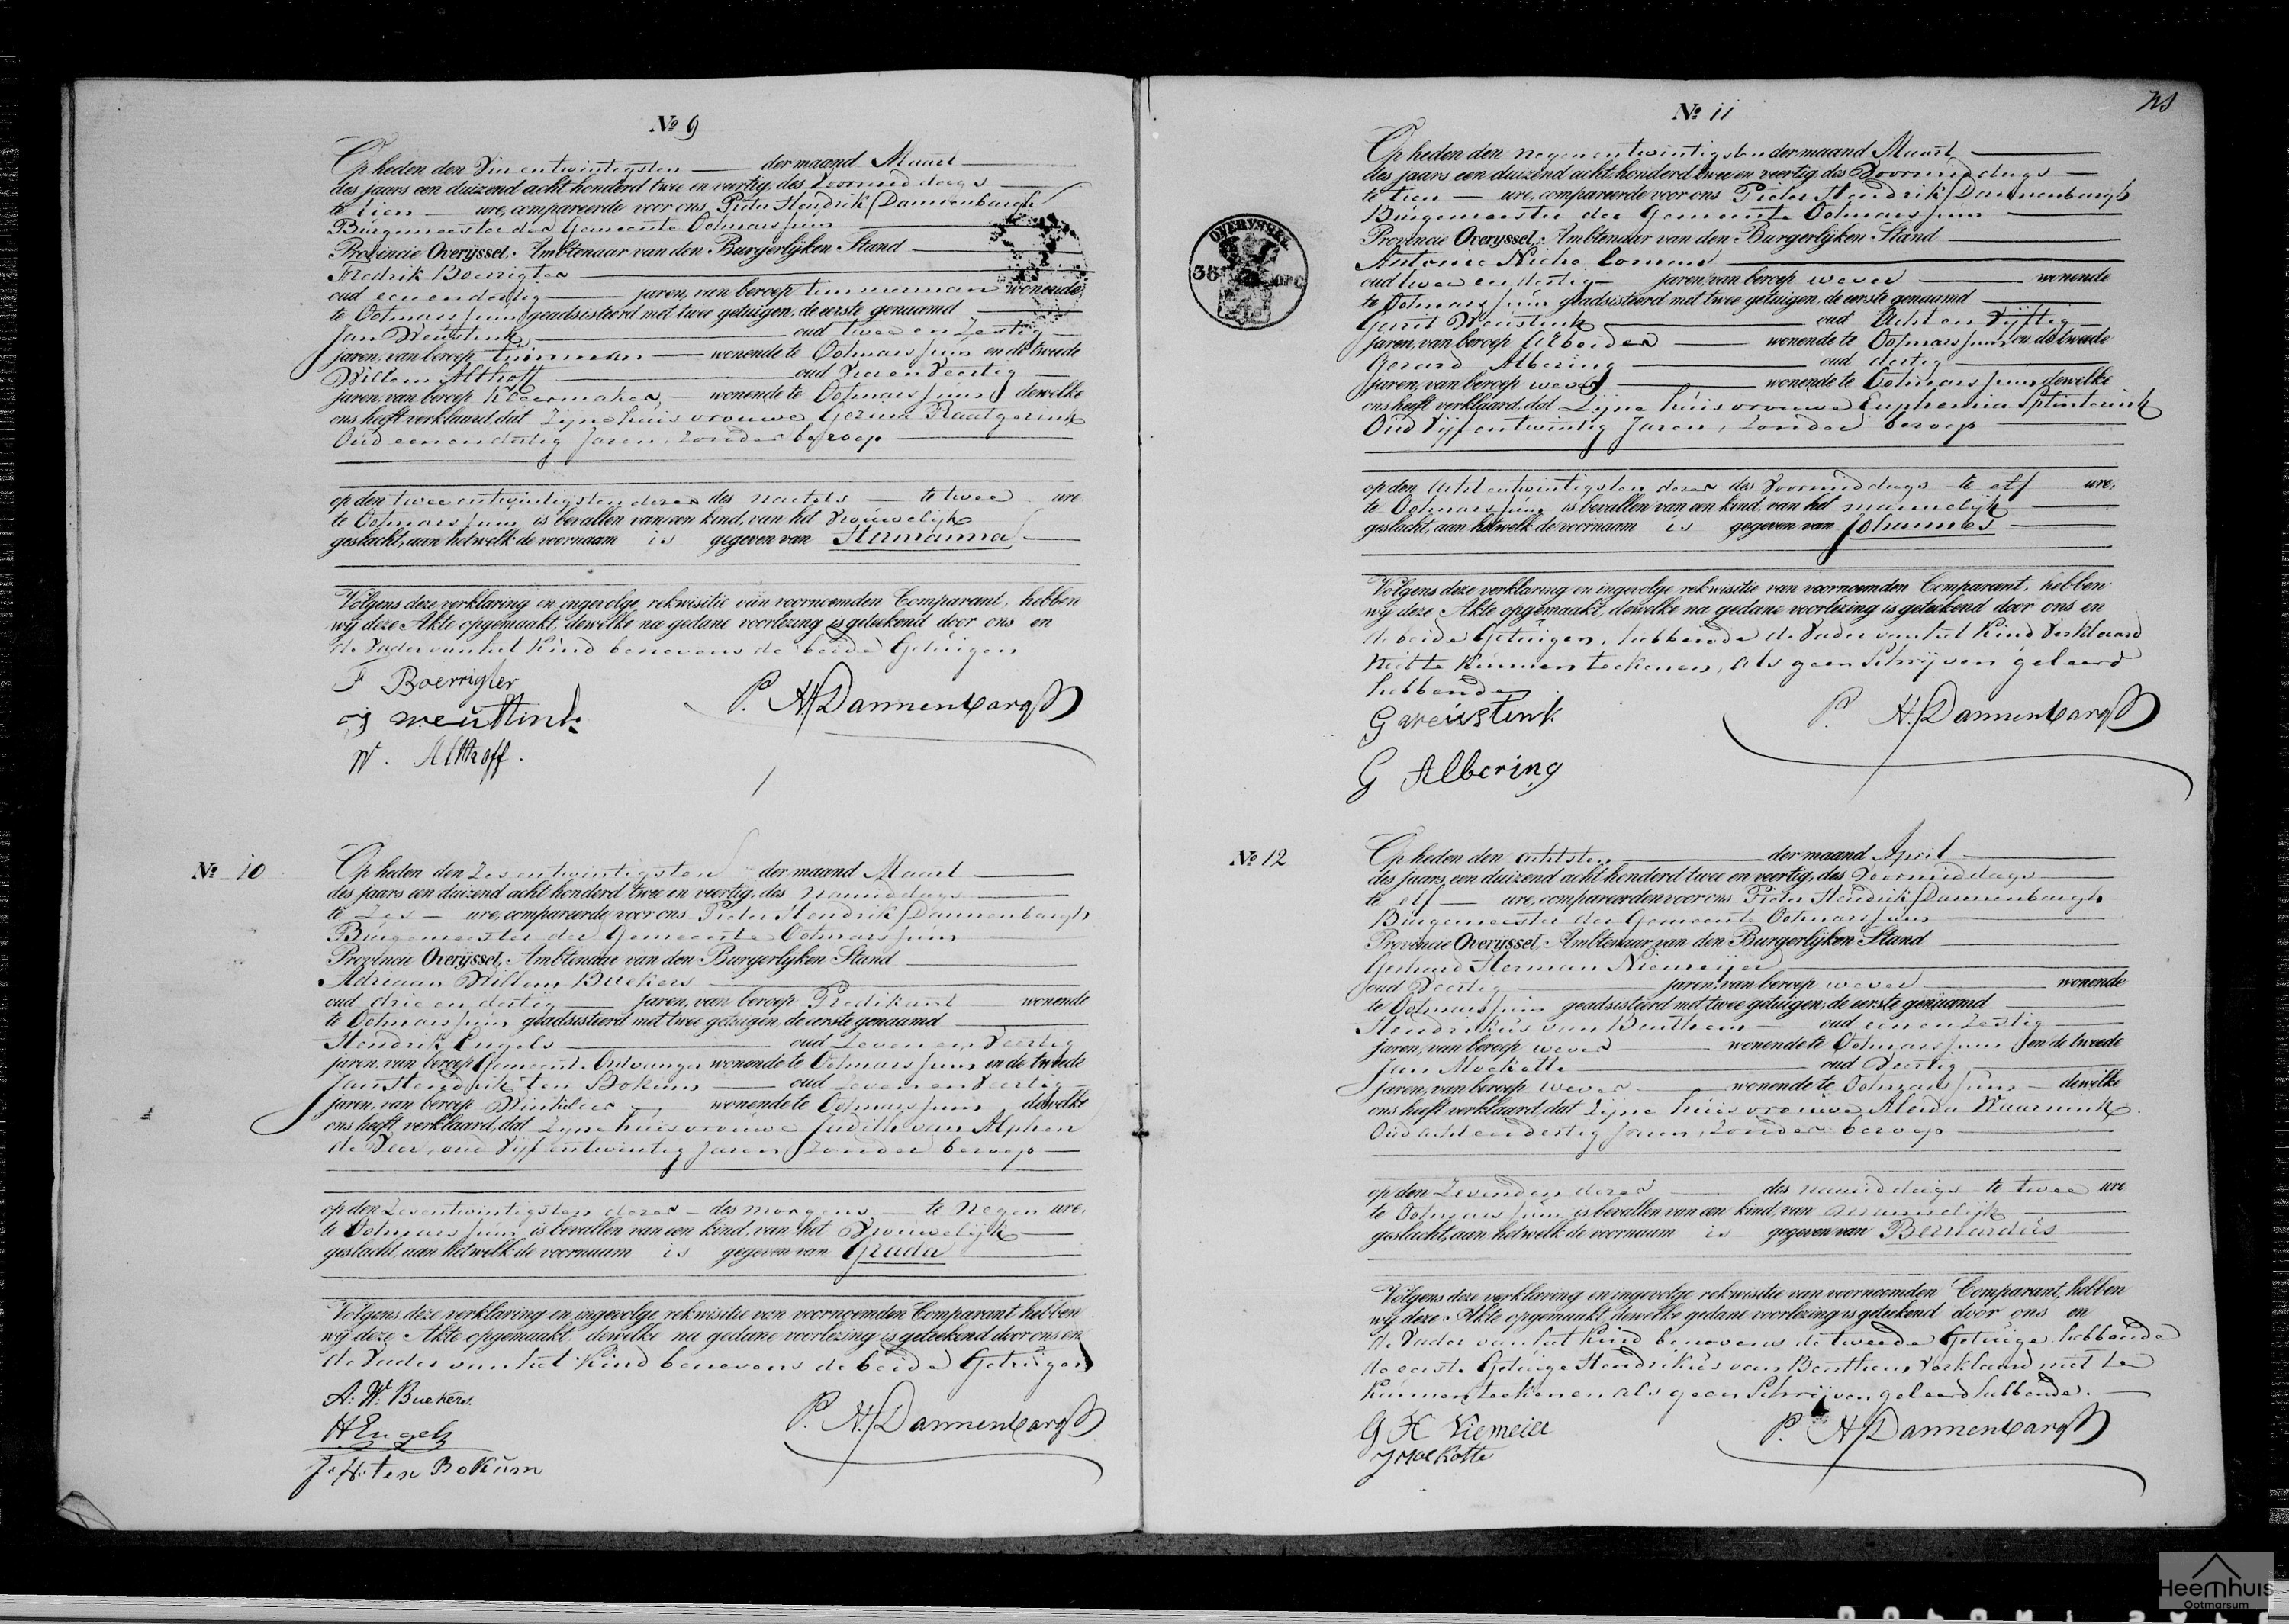 No 9
Op heden den Vier entwintigsten der maand Maart
des jaars een duizend acht honderd twee en veertig, des Voormiddags
te tien ure, compareerde voor ons Pieter Hendrik Dannenbargh
Burgemeester der Gemeente Ootmarssum
Provincie Overijssel, Ambtenaar van den Burgerlijken Stand
Fredrik Boerrigter
oud eenendertig jaren, van beroep timmerman wonende
te Ootmarssum geadsisteerd met twee getuigen, de eerste genaamd
Jan Weustink oud twee en Zestig
jaren, van beroep tuinman wonende te Ootmarssum en de tweede
Willem Althoff oud Vier en Veertig
jaren, van beroep Kleermaker wonende te Ootmarssum dewelke
ons heeft verklaard, dat Zijne huisvrouwe Gezina Raatgerink
Oud eenendertig Jaren, Zonder beroep
op den twee entwintigsten dezer des nachts te twee ure
te Ootmarssum is bevallen van een kind, van het Vrouwelijk
geslacht, aan hetwelk de voornaam is gegeven van Hermanna
Volgens deze verklaring en ingevolge rekwisitie van voornoemden Comparant, hebben
wij deze Akte opgemaakt, dewelke na gedane voorlezing is geteekend door ons en
de Vader van het Kind benevens de beide Getuigen
F Boerrigter
J Weustink P. H. Dannenbargh
W. Althoff.
No 10
Op heden den Zes entwintigsten der maand Maart
des jaars een duizend acht honderd twee en veertig, des namiddags
te Zes ure, compareerde voor ons Pieter Hendrik Dannenbargh
Burgemeester der Gemeente Ootmarssum
Provincie Overijssel, Ambtenaar van den Burgerlijken Stand
Adriaan Willem Buekers
oud drie en dertig jaren, van beroep Predikant wonende
te Ootmarssum geadsisteerd met twee getuigen, de eerste genaamd
Hendrik Engels oud Zeven en Veertig
jaren, van beroep Gemeente Ontvanger wonende te Ootmarssum en de tweede
Jan Hendrik ten Bokum oud Zeven en Veertig
jaren, van beroep Winkelier wonende te Ootmarssum dewelke
ons heeft verklaard, dat Zijne huisvrouwe Judith van Alphen
de Veer, oud Vijf entwintig Jaren, Zonder beroep
op den Zes entwintigsten dezer des morgens te Negen ure,
te Ootmarssum is bevallen van een kind, van het Vrouwelijk
geslacht, aan hetwelk de voornaam is gegeven van Grada
Volgens deze verklaring en ingevolge rekwisitie van voornoemden Comparant hebben
wij deze Akte opgemaakt dewelke na gedane voorlezing is geteekend door ons en
de Vader van het Kind benevens de beide Getuigen
A. W. Buekers
HEngels P. H. Dannenbargh
J. H. ten Bokum
No 11
OVERYSSEL
Op heden den negen entwintigsten der maand Maart
des jaars een duizend acht honderd twee en veertig des Voormiddags
te tien ure, compareerde voor ons Pieter Hendrik Dannenbargh
Burgemeester der Gemeente Ootmarssum
Provincie Overyssel, Ambtenaar van den Burgerlijken Stand
Antonie
oud twee en dertig jaren, van beroep wever wonende
te Ootmarssum geadsisteerd met twee getuigen, de eerste genaamd
Gerrit Weustink oud Acht en Vijftig
jaren, van beroep Arbeider wonende te Ootmarssum en de tweede
Gerard Albering oud dertig
jaren, van beroep wever wonende te Ootmarssum dewelke
ons heeft verklaard, dat Zijne huisvrouwe Euphemia Splinterink
Oud Vijf entwintig Jaren, Zonder beroep
op den Acht entwintigsten dezer des Voormiddags te elf ure,
te Ootmarssum is bevallen van een kind, van het mannelijk
geslacht, aan hetwelk de voornaam is gegeven van Johannes
Volgens deze verklaring en ingevolge rekwisitie van voornoemden Comparant, hebben
wij deze Akte opgemaakt, dewelke na gedane voorlezing is geteekend door ons en
de beide Getuigen, hebbende de Vader van het Kind Verklaard
niet te Kunnen teekenen, als geen Schrijven geleerd
hebbende
G Weustink P. H. Dannenbargh
G Albering
No 12
Op heden den achtsten der maand April
des jaars een duizend acht honderd twee en veertig, des Voormiddags
te elf ure, compareerden voor ons Pieter Hendrik Dannenbargh
Burgemeester der Gemeente Ootmarssum
Provincie Overijssel, Ambtenaar van den Burgerlijken Stand
Gerhard Herman Niemeijer
oud Veertig jaren, van beroep wever wonende
te Ootmarssum geadsisteerd met twee getuigen, de eerste genaamd
Hendrikus van Benthem oud een en Zestig
jaren, van beroep wever wonende te Ootmarssum en de tweede
Jan Moekotte oud Veertig
jaren, van beroep wever wonende te Ootmarssum dewelke
ons heeft verklaard, dat Zijne huisvrouwe Aleida Waarnink
Oud acht en dertig Jaren, Zonder beroep
op den Zevenden dezer des namiddags te twee ure
te Ootmarssum is bevallen van een kind, van mannelijk
geslacht, aan hetwelk de voornaam is gegeven van Bernardus
Volgens deze verklaring en ingevolge rekwisitie van voornoemden Comparant, hebben
wij deze Akte opgemaakt dewelke gedane voorlezing is geteekend door ons en
de Vader van het Kind benevens de tweede Getuige, hebbende
de eerste Getuige Hendrikus van Benthem Verklaard niet te
Kunnen teekenen als geen Schrijven geleerd hebbende.
G H Niemeier P. H. Dannenbargh
J Moekotte
Heemhuis
Ootmarsum